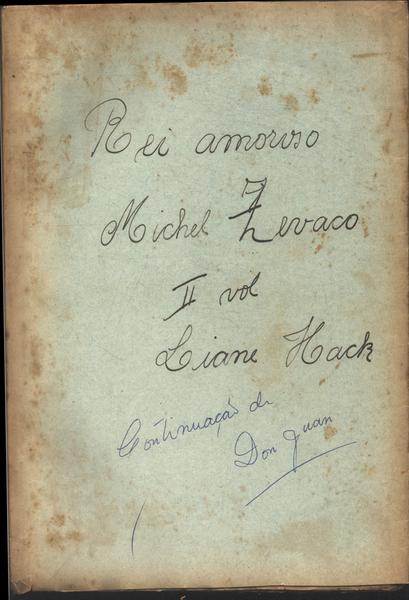 Rei amoroso
Michel Zevaco
II vol
Liane Hack
Continuação de
Don Juan